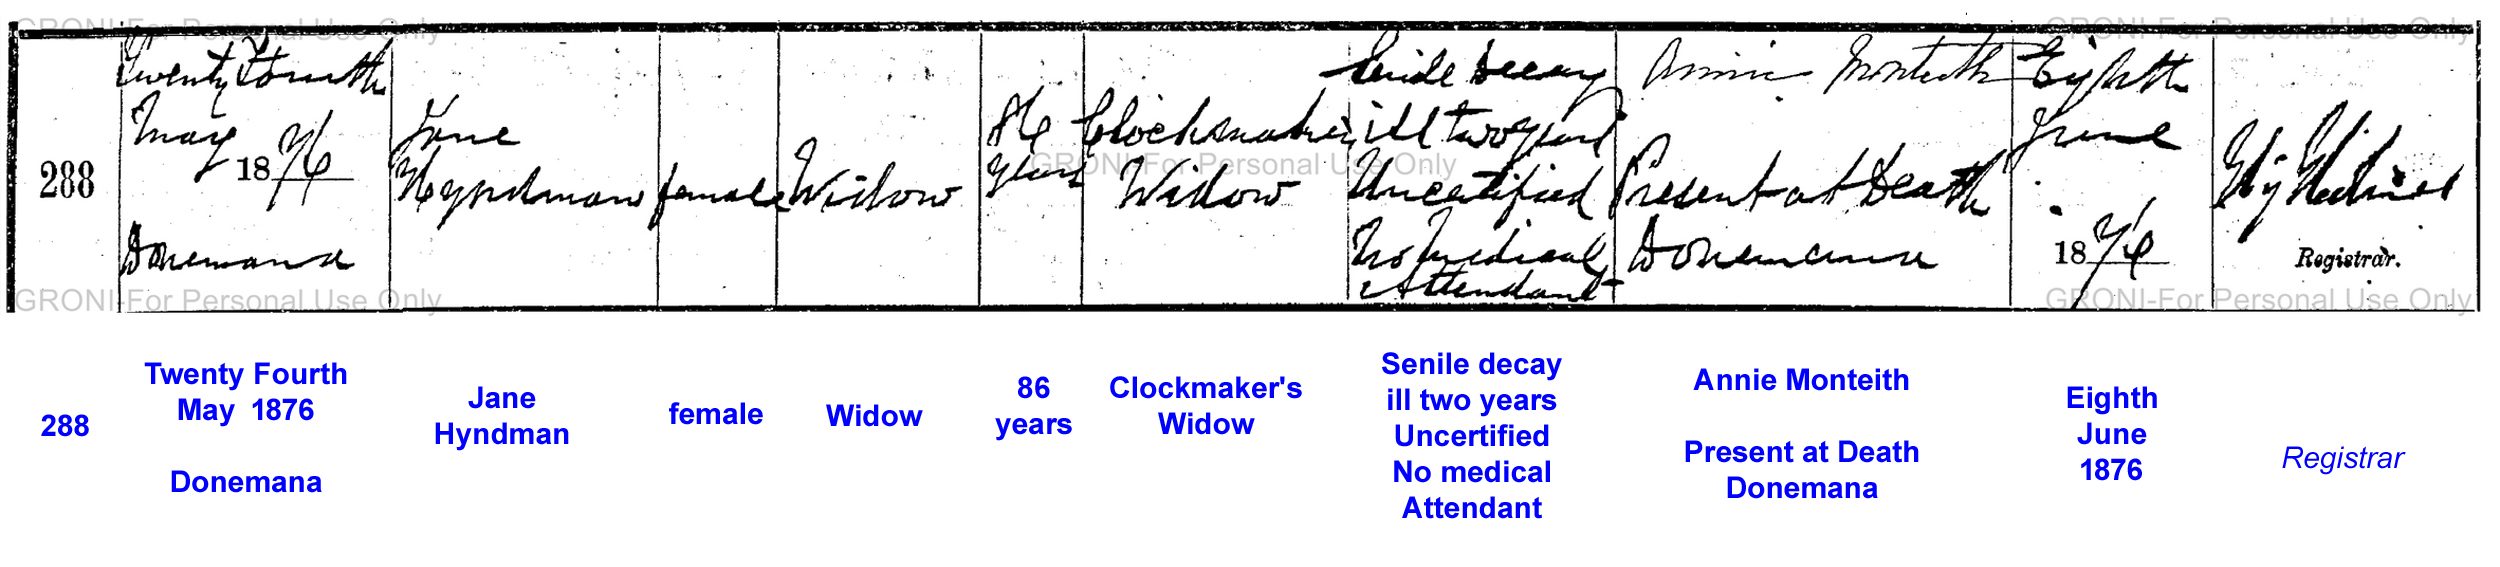 GRONI-For Personal Use Only
GRONI-For Personal Use Only
288
Twenty Fourth
May
1876
Donemana
Jane
Hyndman
female
Widow
86
years
Clockmaker's
Widow
Senile decay
ill two years
Uncertified
No medical
Attendant
Annie Monteith
Present at Death
Donemana
Eighth
June
1876
Registrar.
GRONI-For Personal Use Only
GRONI-For Personal Use Only
GRONI-For Personal Use Only
288
Twenty Fourth
May 1876
Donemana
Jane
Hyndman
female
Widow
86
years
Clockmaker's
Widow
Senile decay
ill two years
Uncertified
No medical
Attendant
Annie Monteith
Present at Death
Donemana
Eighth
June
1876
Registrar